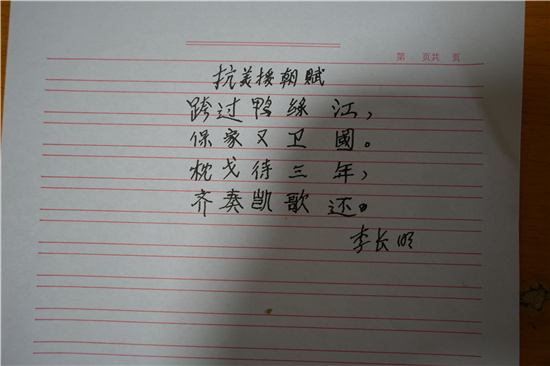 第 页共 页
抗美援朝赋
跨过鸭绿江，
保家又卫國。
枕戈待三年，
齐奏凯歌还。
李长明